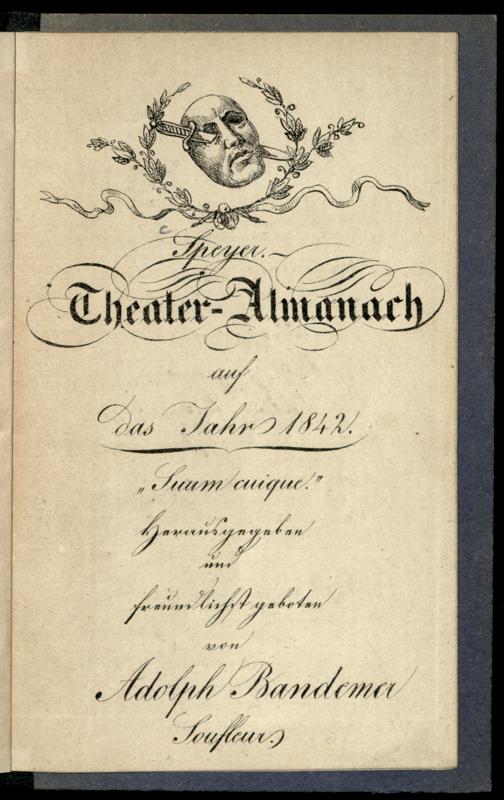 Speyer.
Theater-Almanach
auf
das Jahr 1842.
„Suum cuique."
Herausgegeben
und
freundlichst geboten
von
Adolph Bandemer
Soufleur.